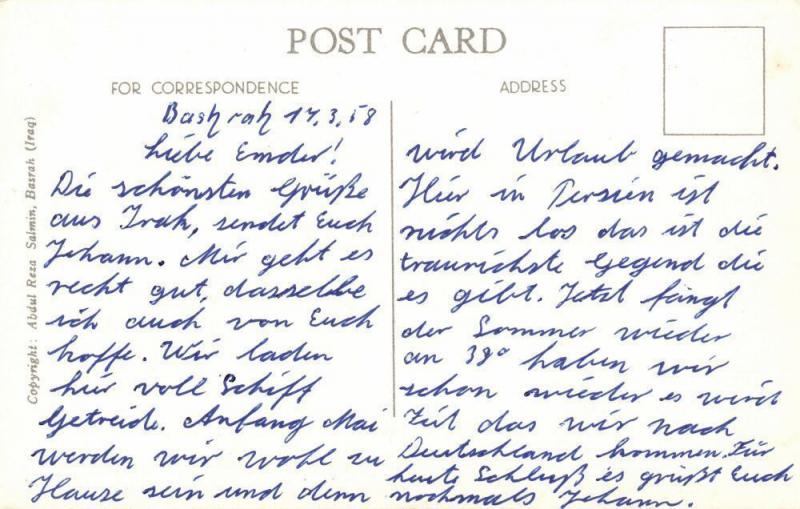 POST CARD
FOR CORRESPONDENCE
ADDRESS
Copyright: Abdul Reza Salmin, Basrah (Iraq)
Bashrah 17.3.58
Liebe Emder!
Die schönsten Grüße
aus Irak, sendet Euch
Johann. Mir geht es
recht gut, dasselbe
ich auch von Euch
hoffe. Wir laden
hier voll Schiff
Getreide. Anfang Mai
werden wir wohl zu
Hause sein und dann
wird Urlaub gemacht.
Hier in Persien ist
nichts los das ist die
traurichste Gegend die
es gibt. Jetzt fängt
der Sommer wieder
an 38° haben wir
schon wieder es wird
Zeit das wir nach
Deutschland kommen. Für
heute Schluß es grüßt Euch
nochmals Johann.